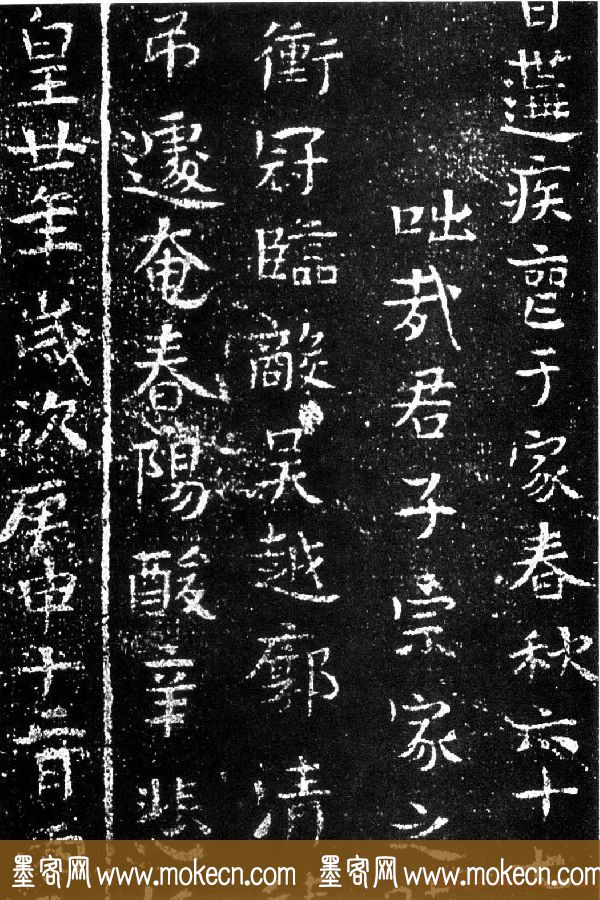 遘疾于家春秋六十
咄哉君子宗家之
衝冠臨敵吳越廓清
吊遽奄春陽酸辛悲
皇廿年歲次庚申十
墨客网 www.mokecn.com 墨客网 www.mokecn.com